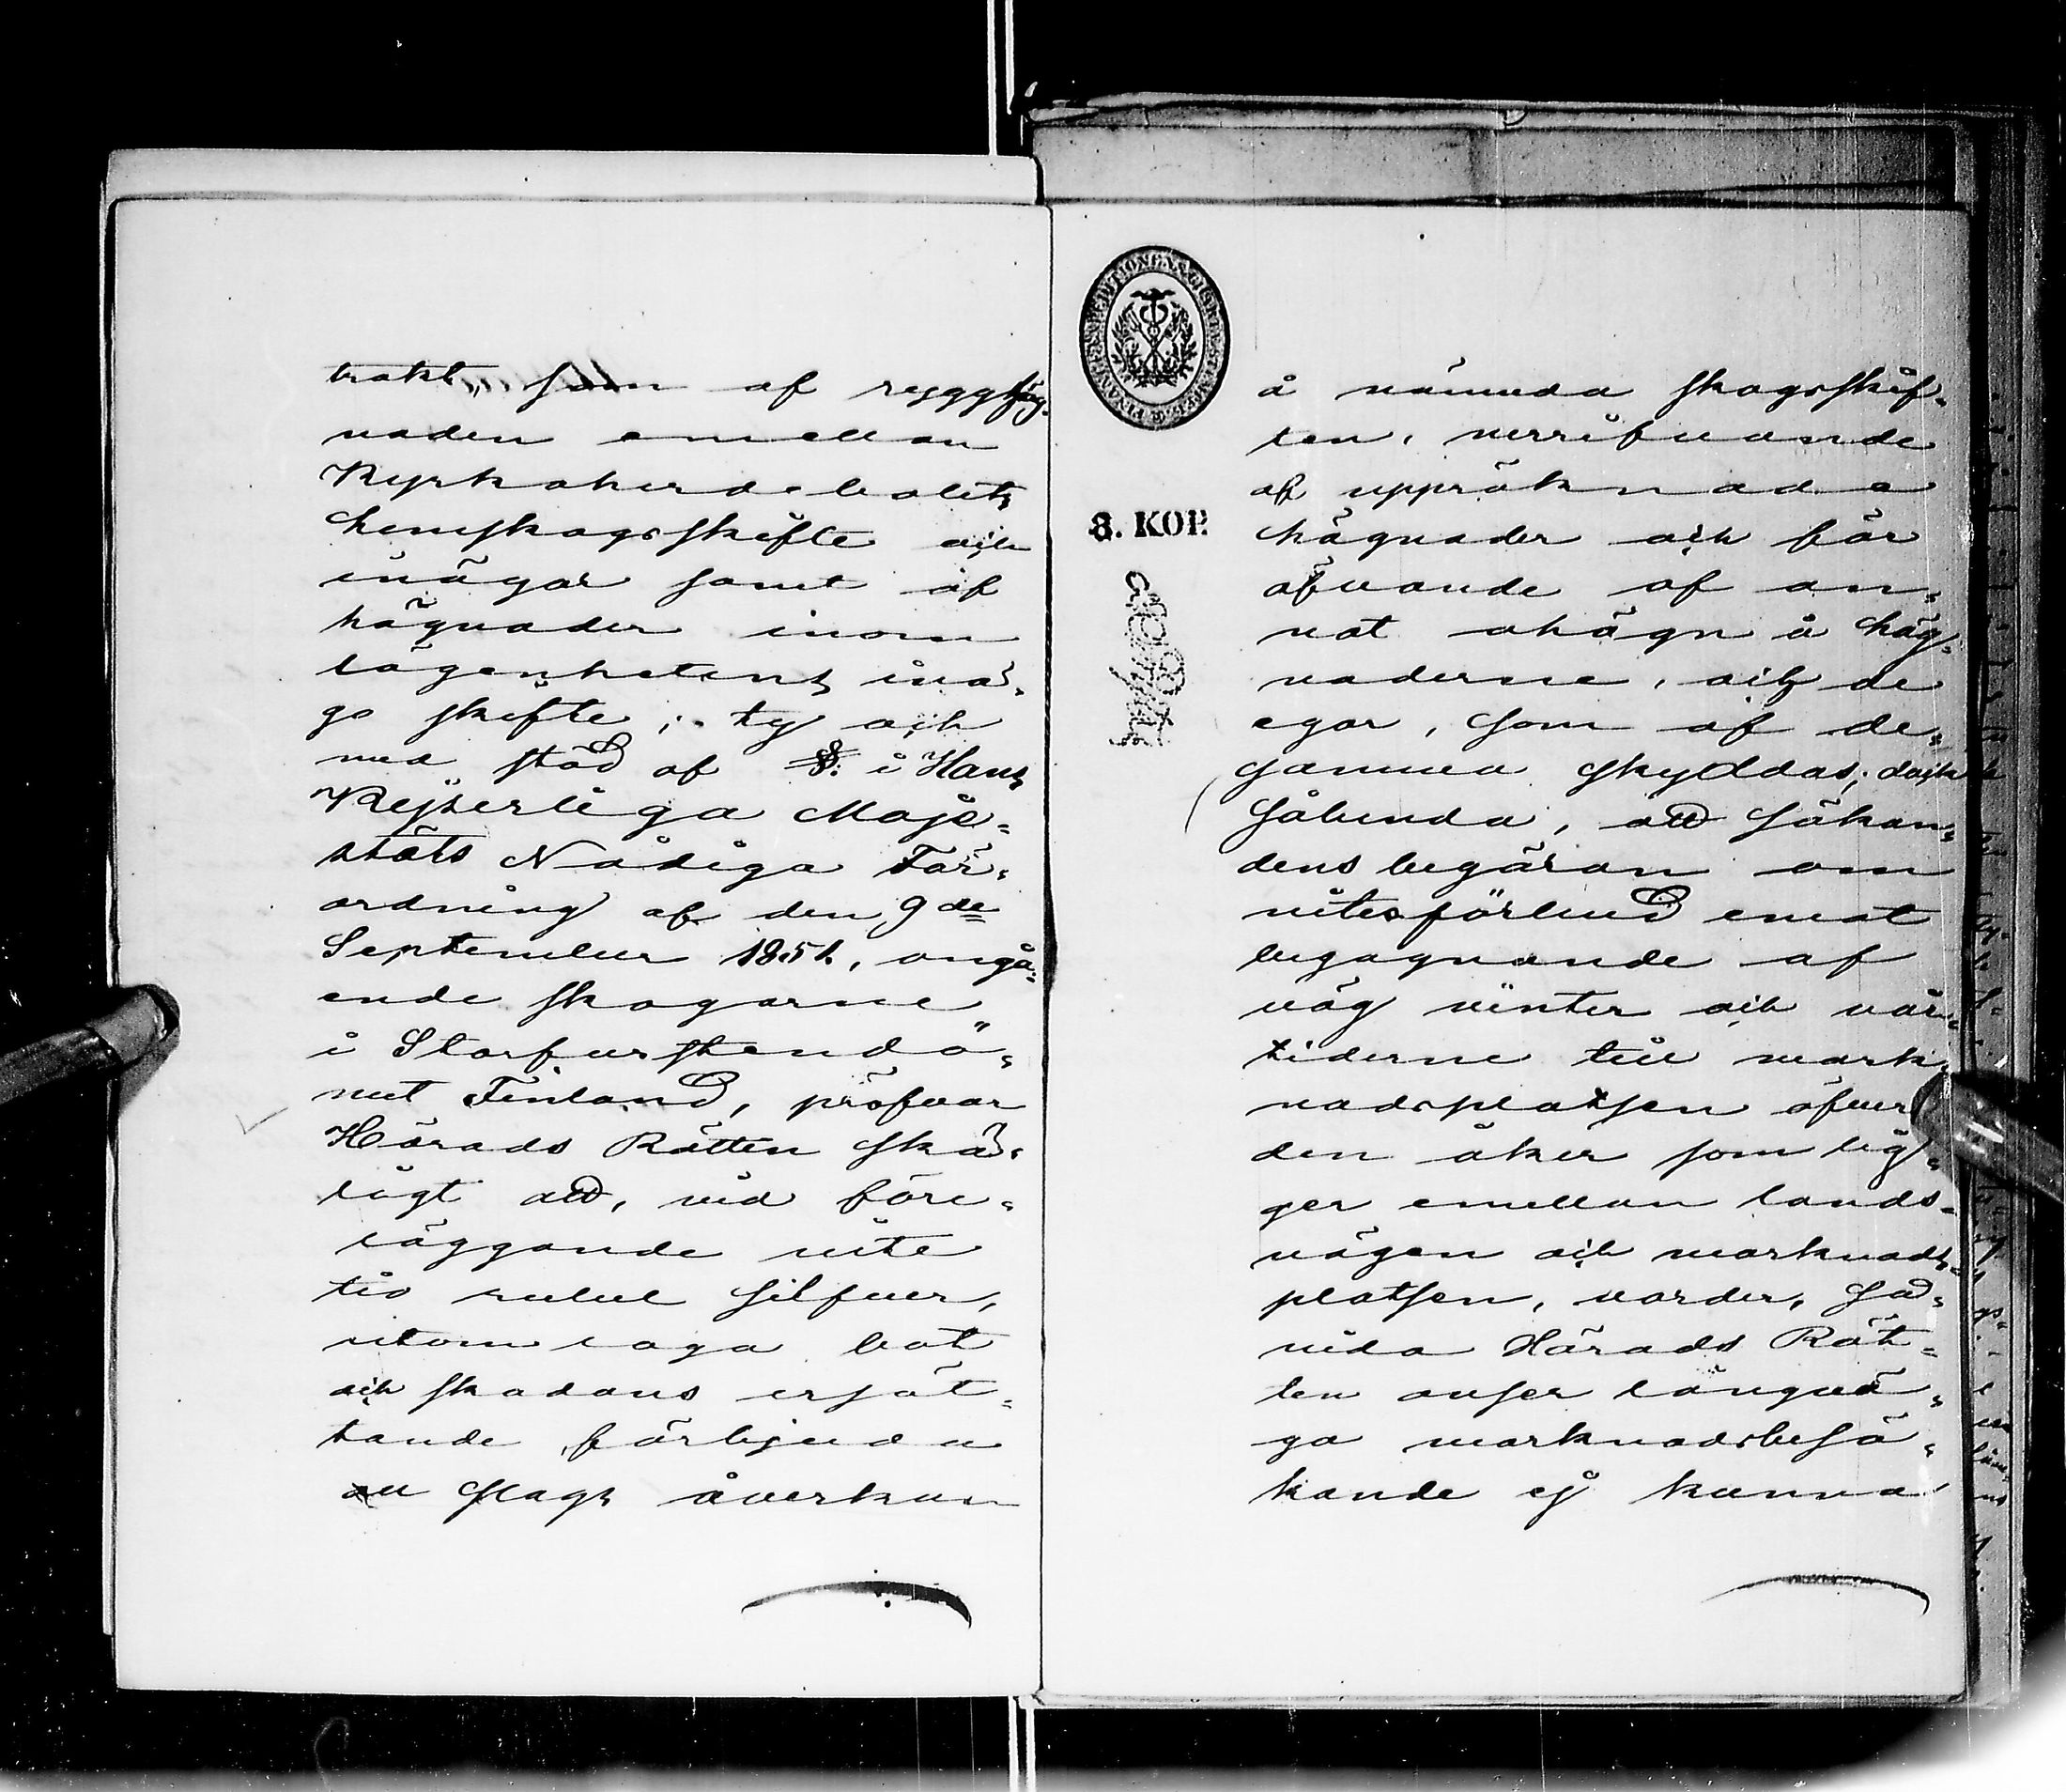 trakt, som af rygghäg-
naden emellan
Kyrkoherdebolets
hemskogsskifte och
inägor samt af
hägnader inom
lägenhetens inä-
go skifte; ty och
med stöd af §: i Hans
Kejserliga Maje-
stäts Nådiga För-
ordning af den 9de
September 1851, angå-
ende skogarne
i Storfurstendö-
met Finland, pröfvar
Härads Rätten skä-
ligt att, vid före-
läggande vite
tio rubel silfver,
utom laga bot
och skadans ersät-
tande, förbjuda
all slags åverkan
å nämnda skogsskif-
ten, nerrifvande
af uppräknade
hägnader och för
öfvande af an-
nat ohägn å häg-
naderne, och de
egor, som af de-
samma skyddas; dock
sålunda, att sökan-
dens begäran om
vitesförbud emot
begagnande af
väg vinter och vår-
tiderne till mark-
nadsplatsen öfver
den åker som lig-
ger emellan lands-
vägen och marknads-
platsen, varder, sad-
vida Härads Rät-
ten anser långvä-
ga marknadsbesö-
kande ej kunna
8. KOP.